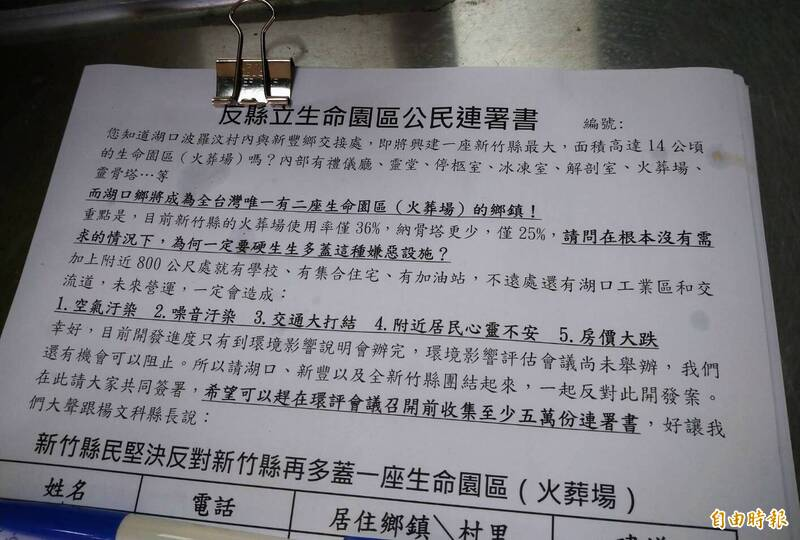 反縣立生命園區公民連署書 編號:
您知道湖口波羅汶村內與新豐鄉交接處,即將興建一座新竹縣最大,面積高達14公頃
的生命園區(火葬場)嗎?內部有禮儀廳、靈堂、停柩室、冰凍室、解剖室、火葬場、
靈骨塔…等
而湖口鄉將成為全台灣唯一有二座生命園區(火葬場)的鄉鎮!
重點是,目前新竹縣的火葬場使用率僅36%,納骨塔更少,僅25%,請問在根本沒有需
求的情況下,為何一定要硬生生多蓋這種嫌惡設施?
加上附近800公尺處就有學校、有集合住宅、有加油站,不遠處還有湖口工業區和交
流道,未來營運,一定會造成:
1.空氣汙染 2.噪音汙染 3.交通大打結 4.附近居民心靈不安 5.房價大跌
幸好,目前開發進度只有到環境影響說明會辦完,環境影響評估會議尚未舉辦,我們
還有機會可以阻止。所以請湖口、新豐以及全新竹縣團結起來,一起反對此開發案。
在此請大家共同簽署,希望可以趕在環評會議召開前收集至少五萬份連署書,好讓我
們大聲跟楊文科縣長說:
新竹縣民堅決反對新竹縣再多蓋一座生命園區(火葬場)
姓名 電話 居住鄉鎮\村里
自由時報